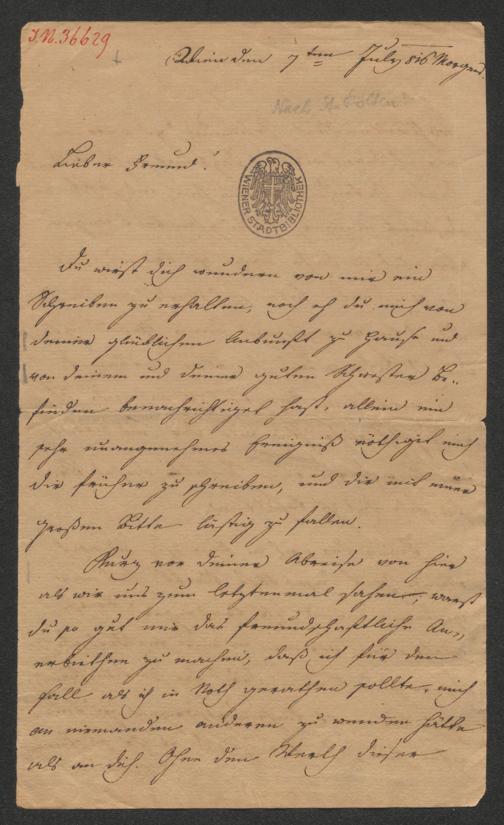 J.N. 36629
Wien den 7ten July 816 Morgens
Nach St. Pölten
Lieber Freund!
WIENER STADTBIBLIOTHEK
Du wirst dich wundern von mir ein
Schreiben zu erhalten, noch eh du mich von
deiner glücklichen Ankunft zu Hause und
von deinem und deiner guten Schwester Be-
finden benachrichtiget hast, allein ein
sehr unangenehmes Ereigniß nöthiget mich
dir früher zu schreiben, und dir mit einer
großen Bitte lästig zu fallen.
Kurz vor deiner Abreise von hier
als wir uns zum letztenmal sahen, warst
du so gut mir das freundschaftliche An-
erbiethen zu machen, daß ich für den
Fall als ich in Noth gerathen sollte, mich
an niemanden anderen zu wenden hätte
als an dich. Ohne den Werth dieser